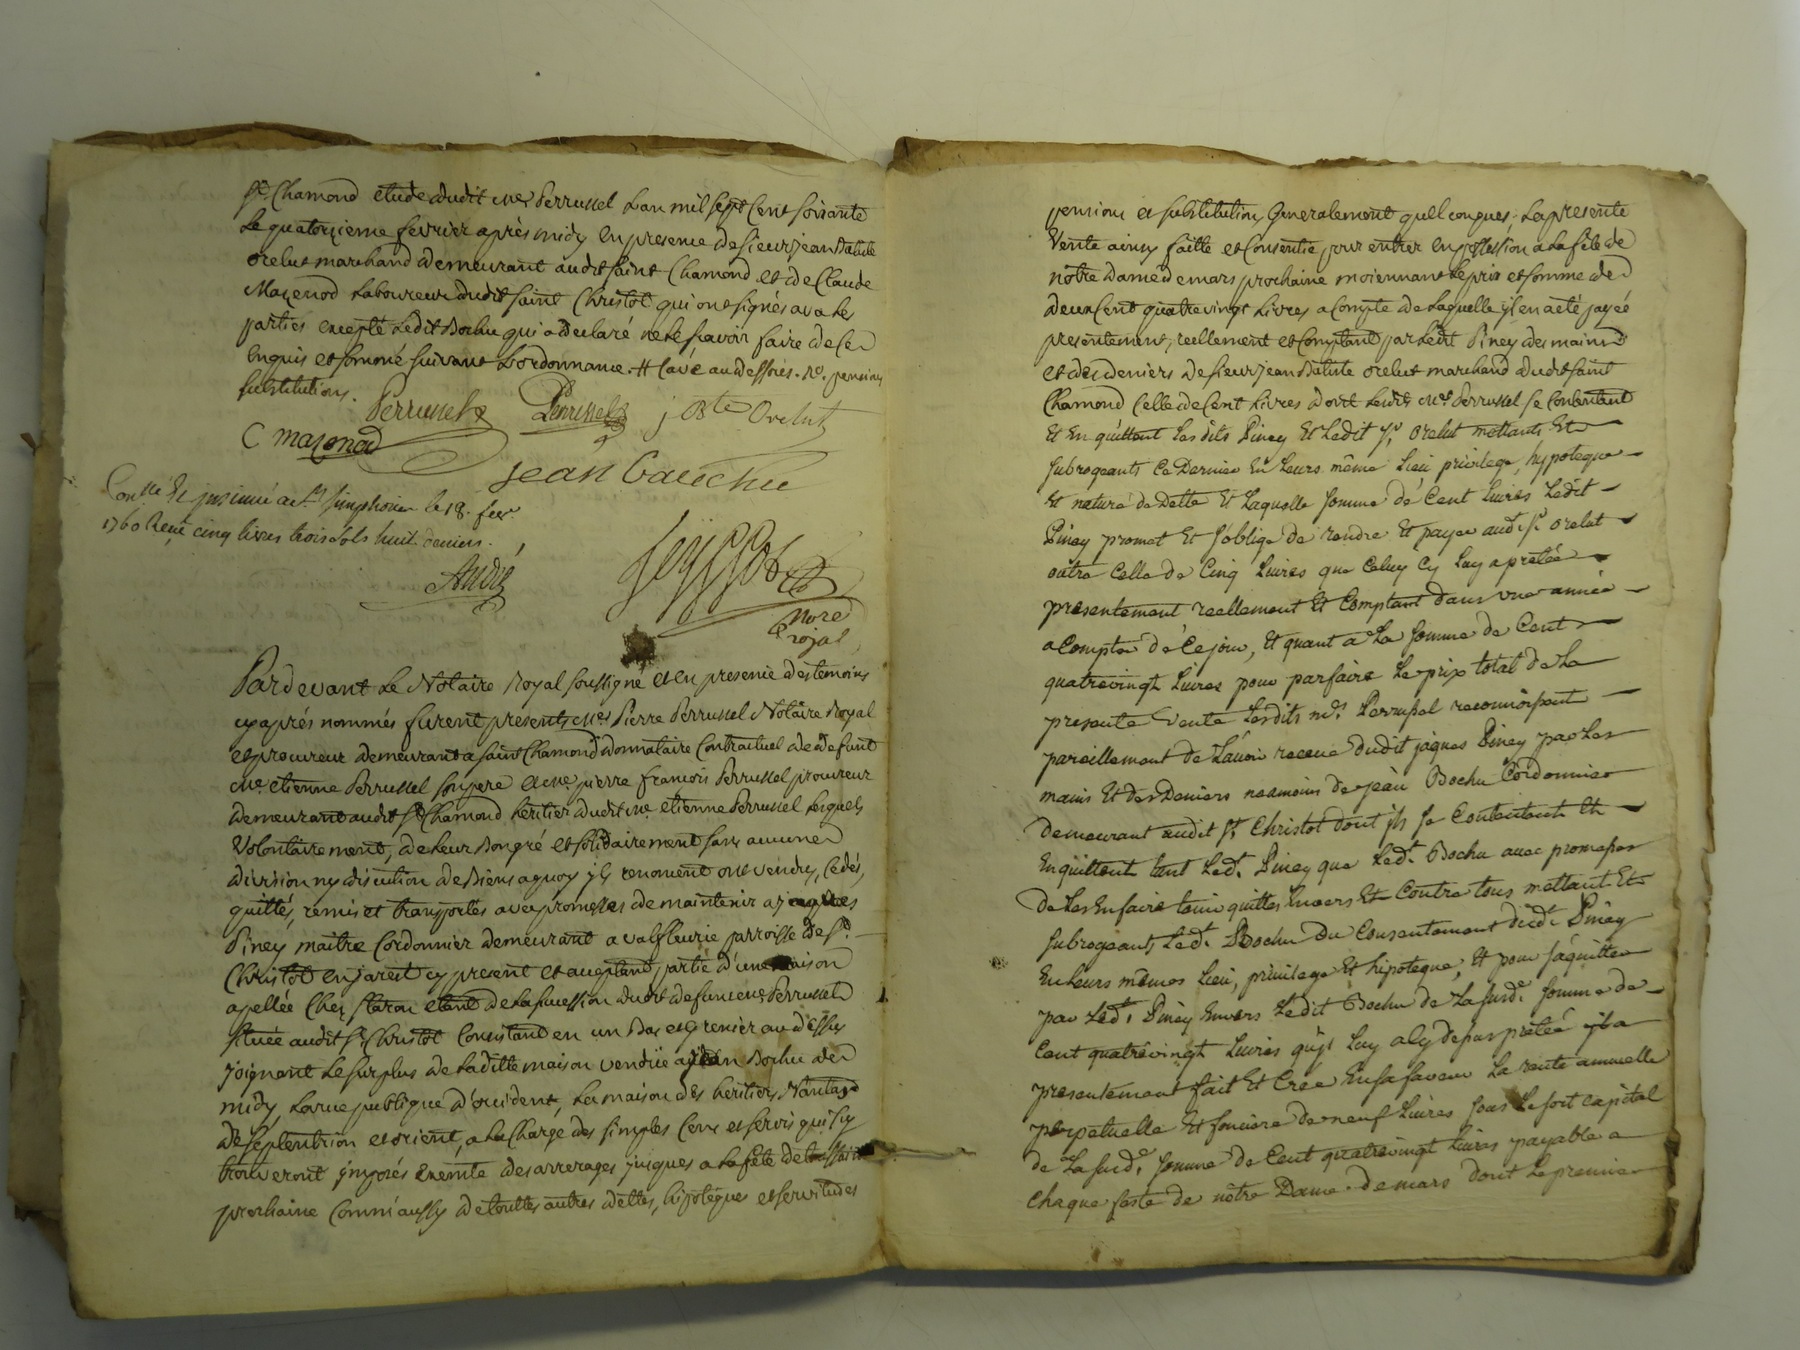 St Chamond etude dudit me Perrussel L'an mil sept Cent soixante
Le quatorzieme fevrier après midy En presence de sieur jean Batiste
orelut marchand demeurant audit saint Chamond et de Claude
Mazenod Laboureur dudit saint Christot qui ont signés avec les
parties excepté Ledit Bochu qui a declaré ne le sçavoir faire de ce
Enquis et sommé suivant L'ordonnance. # Cavé au dessus. Ro. pensions
substitutions.
Perrussel Perrussel j Bte Orelut
C mazenod
jean Gauchu
Conllé Et jnsinué a St simphorien le 18. fevr.
1760 Reçu cinq livres trois sols huit deniers.
André
nore
royal
Pardevant Le Notaire Royal soussigné et en presence des temoins
cy aprés nommés furent presents me Pierre Perrussel Notaire Royal
et procureur demeurant a saint Chamond donnataire Contractuel de defunt
me. etienne Perrussel son pere et me. pierre francois Perrussel procureur
demeurant audit St Chamond heritier dudit me. etienne Perrussel Lesquels
Volontairement, de leur Bon gré et solidairement sans aucune
division ny discution de Biens a quoy jls renoncent ont vendus, Cedés,
quittés, remis et transportés avec promesses de maintenir a jacques
Piney maitre Cordonnier demeurant a valfleurie parroisse de St.
Christot en jarest cy present et acceptant, partie d'une maison
apellée Chez staron etant de la succession dudit defunt me Perrussel
située audit St Christot Consistant en un Bas et Grenier au dessus
joignant Le surplus de Laditte maison vendüe a jean Bochu de
midy, La rue publique d'occident, La maison des heritiers Nantas
de septentrion et orient, a La Charge des simples Cens et servis qui s'y
trouveront jmposés Exempte des arrerages jusques a La fête de toussaint
prochaine Comm'aussy de touttes autres dettes, hipotéques et servitudes
pensions et substitutions Generalement quelconques. La presente
Vente ainsy faitte et Consentie pour entrer en possession a La fête de
nôtre dame de mars prochaine moiennant Le prix et somme de
deux Cent quatrevingt Livres a Compte de Laquelle jl en a été payée
presentement, reellement et Comptant par Ledit Piney des mains
et des deniers de sieur jean Batiste orelut marchand dudit saint
Chamond Celle de Cent Livres dont Lesdits mes Perrussel se Contentant
Et En quittant Lesdits Piney Et Ledit Sr. orelut mettants Et
subrogeants Ce Dernier En Leurs même Lieu privilege, hypoteque
Et nature de Dette Et Laquelle somme de Cent Livres Ledit
Piney promet Et s'oblige de rendre Et payer audt. Sr. orelut
outre Celle de Cinq Livres que Celuy Cy Luy a pretée
presentement reellement Et Comptant dans une année
a Compter de Ce jour, Et quant a La somme de Cent
quatrevingt Livres pour parfaire Le prix total de La
presente Vente Lesdits mes. Perrussel reconnoissent
pareillement de L'avoir receue dudit jaques Piney par Les
mains Et des Deniers neamoins de jean Bochu Cordonnier
demeurant audit St. Christot dont jls se Contentent Et
En quittent tant Ledt. Piney que Ledt. Bochu avec promesses
de Les En faire tenir quittes Envers Et Contre tous mettant Et
subrogeants Ledt. Bochu Du Consentement dudt. Piney
En Leurs mêmes Lieu, privilege Et hipoteque, Et pour s'aquitter
par Ledt. Piney Envers Ledit Bochu de La susde. somme de
Cent quatrevingt Livres qu'jl Luy a cy depuis pretée jl a
presentement fait Et Créé En sa faveur La rente annuelle
perpetuelle Et fonciere de neuf Livres sous Le sort capital
de La susde. somme de Cent quatrevingt Livres payable a
Chaque feste de nôtre Dame de mars dont Le premier